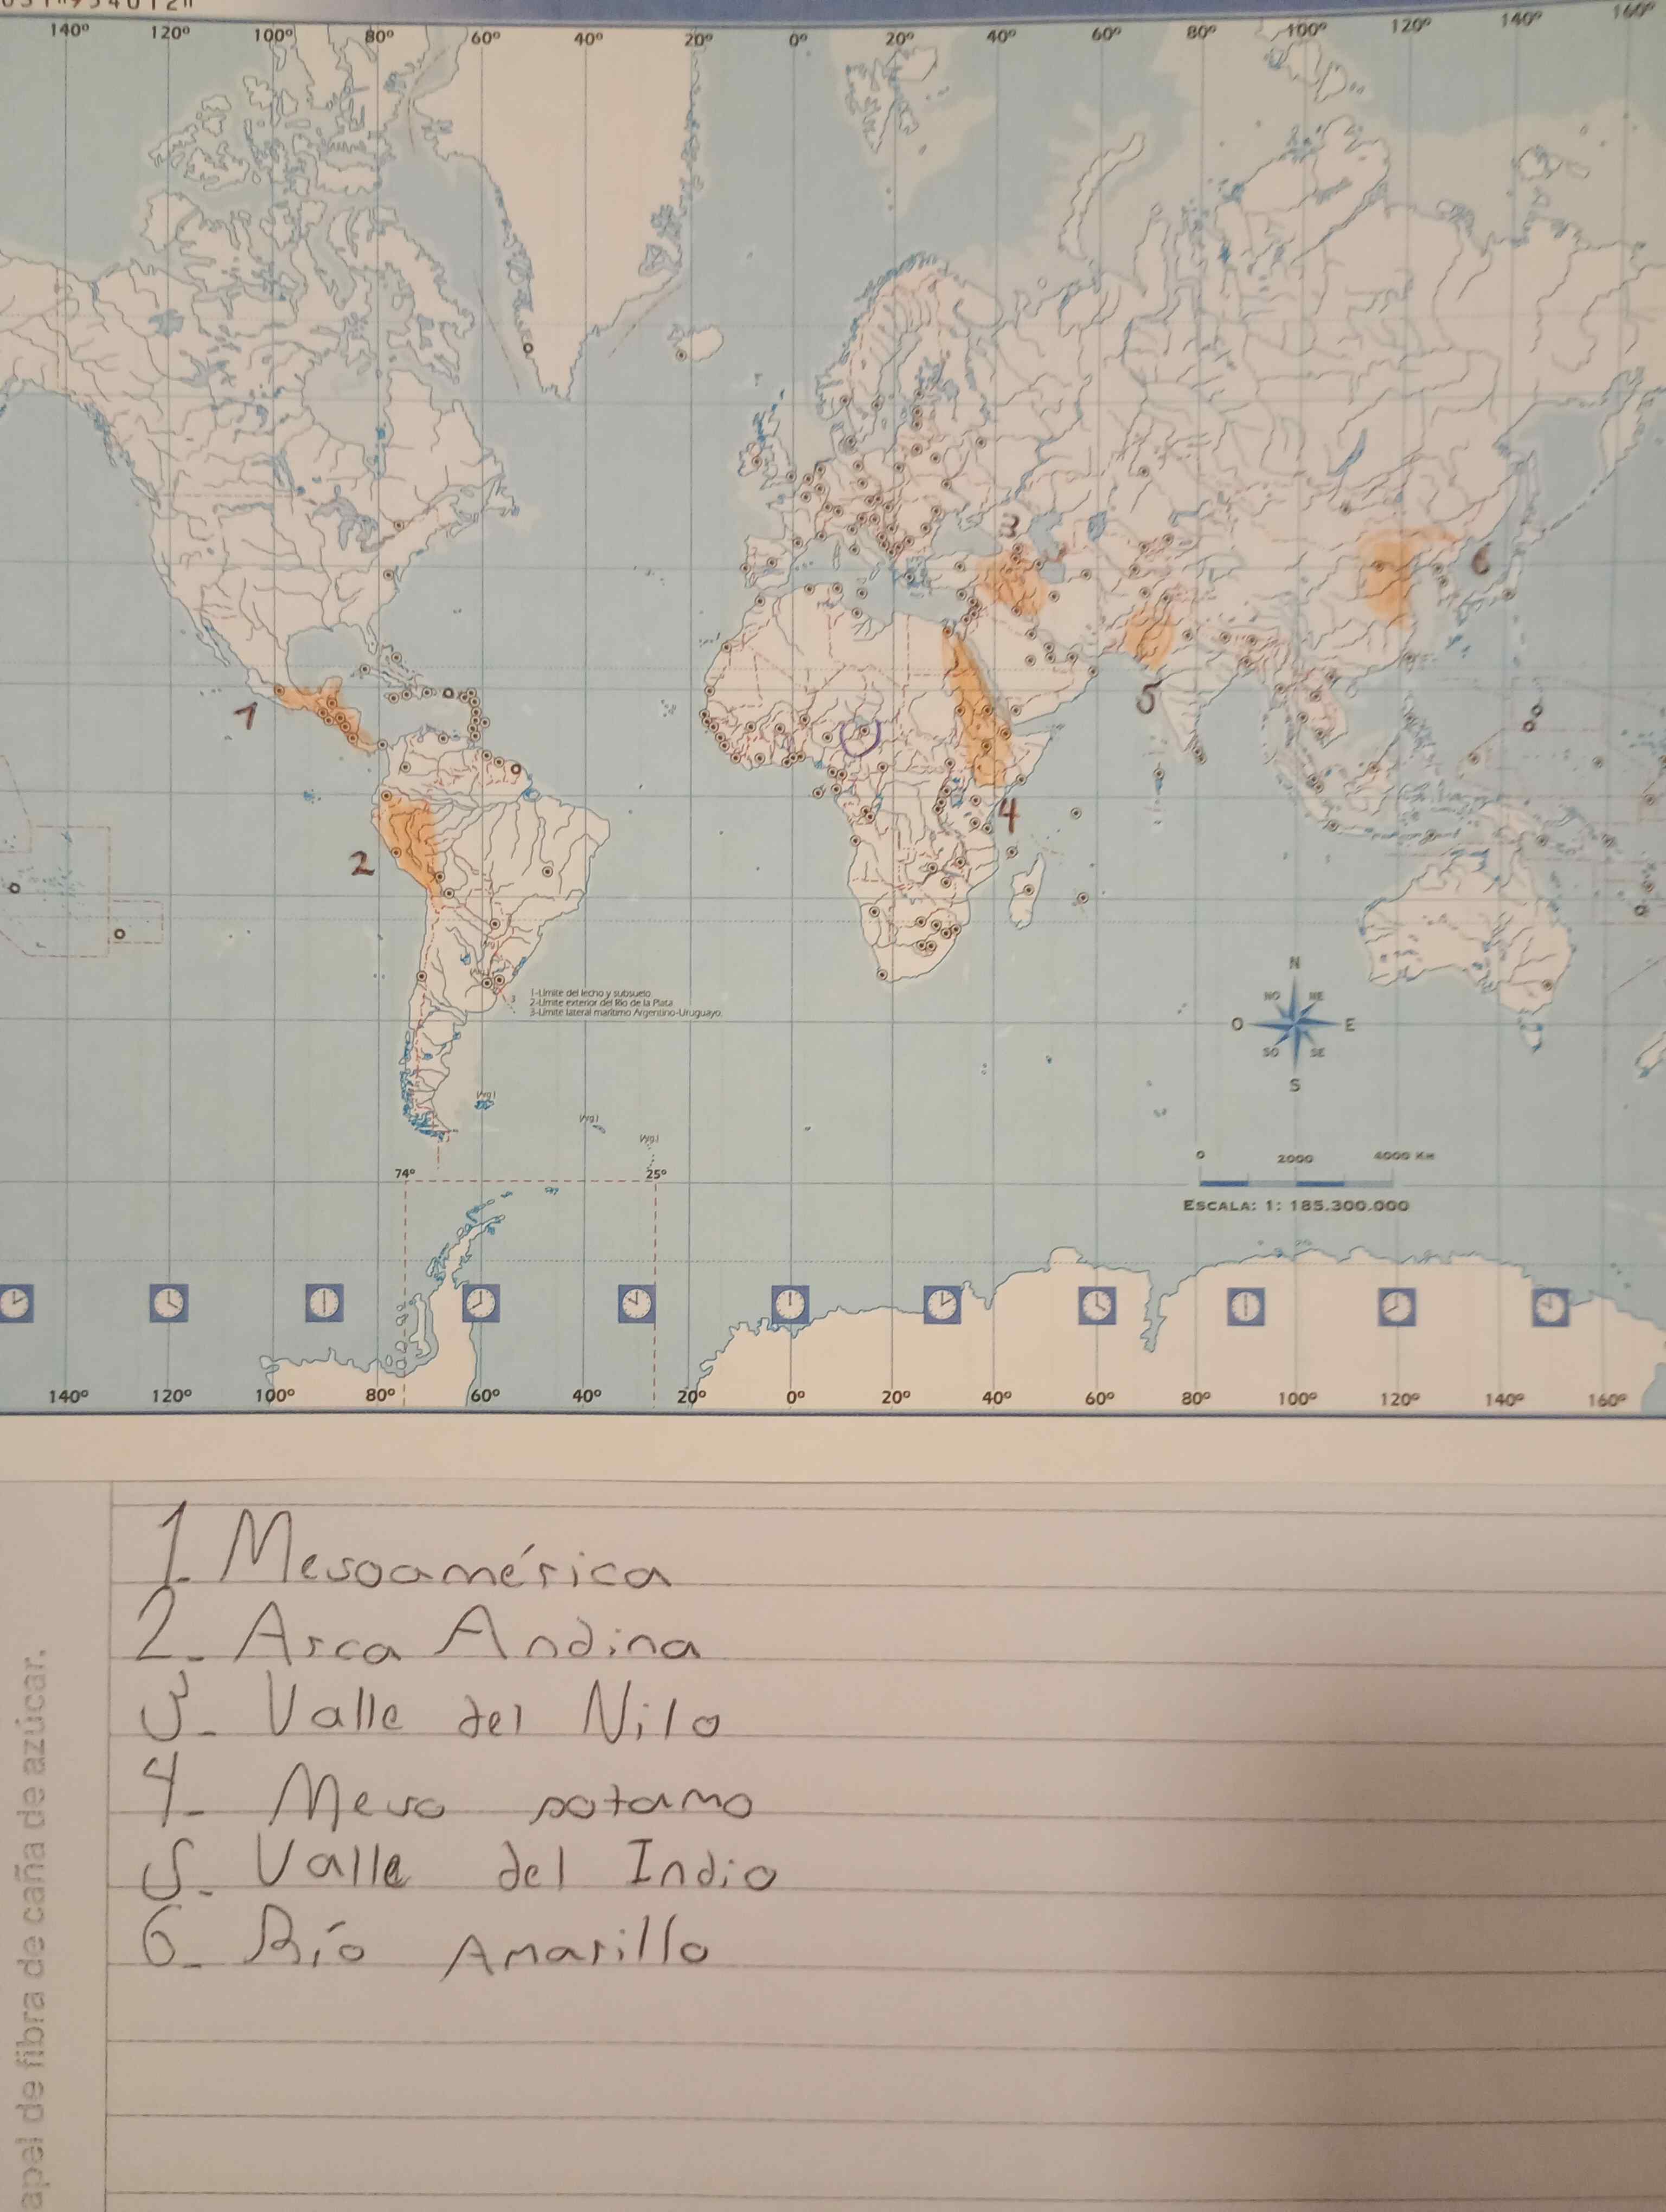 140° 120° 100° 80° 60° 40° 20° 0° 20° 40° 60° 80° 100° 120° 140° 160°
3
6
5
1
4
2
1-Límite del lecho y subsuelo
2-Límite exterior del Río de la Plata
3-Límite lateral marítimo Argentino-Uruguayo.
N
NO NE
O E
SO SE
S
74° 25°
0 2000 4000 Km
ESCALA: 1: 185.300.000
140° 120° 100° 80° 60° 40° 20° 0° 20° 40° 60° 80° 100° 120° 140° 160°
1. Mesoamérica
2. Area Andina
3. Valle del Nilo
4. Meso potamo
5. Valle del Indio
6. Río Amarillo
apel de fibra de caña de azúcar.